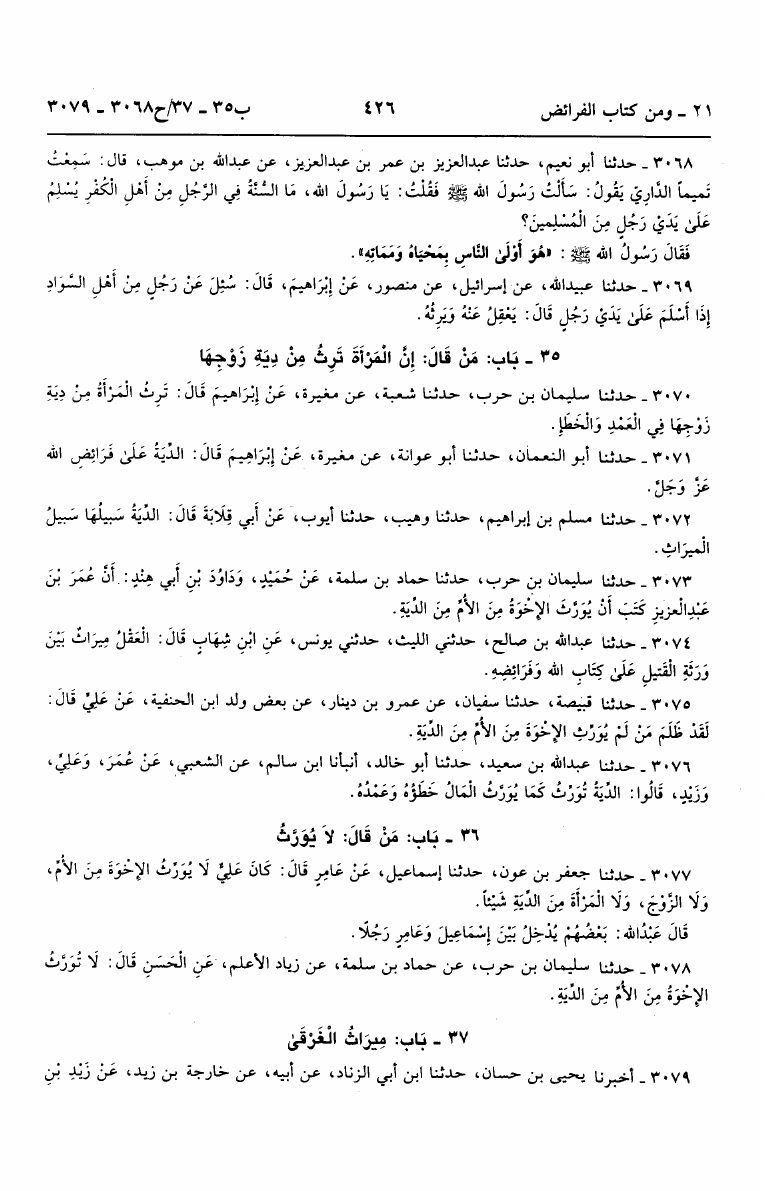 ٢١ ـ ومن كتاب الفرائض ٤٢٦ ب٣٥ ـ ٣٧/ح٣٠٦٨ ـ ٣٠٧٩
٣٠٦٨ ـ حدثنا أبو نعيم، حدثنا عبدالعزيز بن عمر بن عبدالعزيز، عن عبدالله بن موهب، قال: سَمِعْتُ
تَمِيماً الدَّارِيّ يَقُولُ: سَأَلْتُ رَسُولَ الله ﷺ فَقُلْتُ: يَا رَسُولَ الله، مَا السُّنَّةُ فِي الرَّجُلِ مِنْ أَهْلِ الْكُفْرِ يُسْلِمُ
عَلَىٰ يَدَيْ رَجُلٍ مِنَ الْمُسْلِمِينَ؟
فَقَالَ رَسُولُ الله ﷺ: «هُوَ أَوْلَىٰ النَّاسِ بِمَحْيَاهُ وَمَمَاتِهِ».
٣٠٦٩ ـ حدثنا عبيدالله، عن إسرائيل، عن منصور، عَنْ إِبْرَاهِيمَ، قَالَ: سُئِلَ عَنْ رَجُلٍ مِنْ أَهْلِ السَّوَادِ
إِذَا أَسْلَمَ عَلَىٰ يَدَيْ رَجُلٍ قَالَ: يَعْقِلُ عَنْهُ وَيَرِثُهُ.
٣٥ ـ بَاب: مَنْ قَالَ: إِنَّ الْمَرْأَةَ تَرِثُ مِنْ دِيَةِ زَوْجِهَا
٣٠٧٠ ـ حدثنا سليمان بن حرب، حدثنا شعبة، عن مغيرة، عَنْ إِبْرَاهِيمَ قَالَ: تَرِثُ الْمَرْأَةُ مِنْ دِيَةِ
زَوْجِهَا فِي الْعَمْدِ وَالْخَطَإِ.
٣٠٧١ ـ حدثنا أبو النعمان، حدثنا أبو عوانة، عن مغيرة، عَنْ إِبْرَاهِيمَ قَالَ: الدِّيَةُ عَلَىٰ فَرَائِضِ الله
عَزَّ وَجَلَّ.
٣٠٧٢ ـ حدثنا مسلم بن إبراهيم، حدثنا وهيب، حدثنا أيوب، عَنْ أَبِي قِلَابَةَ قَالَ: الدِّيَةُ سَبِيلُهَا سَبِيلُ
الْمِيرَاثِ.
٣٠٧٣ ـ حدثنا سليمان بن حرب، حدثنا حماد بن سلمة، عَنْ حُمَيْدٍ، وَدَاوُدَ بْنِ أَبِي هِنْدٍ: أَنَّ عُمَرَ بْنَ
عَبْدِالْعَزِيزِ كَتَبَ أَنْ يُوَرَّثَ الإِخْوَةُ مِنَ الأُمِّ مِنَ الدِّيَةِ.
٣٠٧٤ ـ حدثنا عبدالله بن صالح، حدثني الليث، حدثني يونس، عَنِ ابْنِ شِهَابٍ قَالَ: الْعَقْلُ مِيرَاثٌ بَيْنَ
وَرَثَةِ الْقَتِيلِ عَلَىٰ كِتَابِ الله وَفَرَائِضِهِ.
٣٠٧٥ ـ حدثنا قبيصة، حدثنا سفيان، عن عمرو بن دينار، عن بعض ولد ابن الحنفية، عَنْ عَلِيٍّ قَالَ:
لَقَدْ ظَلَمَ مَنْ لَمْ يُوَرِّثِ الإِخْوَةَ مِنَ الأُمِّ مِنَ الدِّيَةِ.
٣٠٧٦ ـ حدثنا عبدالله بن سعيد، حدثنا أبو خالد، أنبأنا ابن سالم، عن الشعبي، عَنْ عُمَرَ، وَعَلِيٍّ،
وَزَيْدٍ، قَالُوا: الدِّيَةُ تُوَرَّثُ كَمَا يُوَرَّثُ الْمَالُ خَطَؤُهُ وَعَمْدُهُ.
٣٦ ـ بَاب: مَنْ قَالَ: لاَ يُوَرَّثُ
٣٠٧٧ ـ حدثنا جعفر بن عون، حدثنا إسماعيل، عَنْ عَامِرٍ قَالَ: كَانَ عَلِيٌّ لَا يُوَرِّثُ الإِخْوَةَ مِنَ الأُمِّ،
وَلَا الزَّوْجَ، وَلَا الْمَرْأَةَ مِنَ الدِّيَةِ شَيْئاً.
قَالَ عَبْدُالله: بَعْضُهُمْ يُدْخِلُ بَيْنَ إِسْمَاعِيلَ وَعَامِرٍ رَجُلًا.
٣٠٧٨ ـ حدثنا سليمان بن حرب، عن حماد بن سلمة، عن زياد الأعلم، عَنِ الْحَسَنِ قَالَ: لَا تُوَرَّثُ
الإِخْوَةُ مِنَ الأُمِّ مِنَ الدِّيَةِ.
٣٧ ـ بَاب: مِيرَاثُ الْغَرْقَىٰ
٣٠٧٩ ـ أخبرنا يحيى بن حسان، حدثنا ابن أبي الزناد، عن أبيه، عن خارجة بن زيد، عَنْ زَيْدِ بْنِ